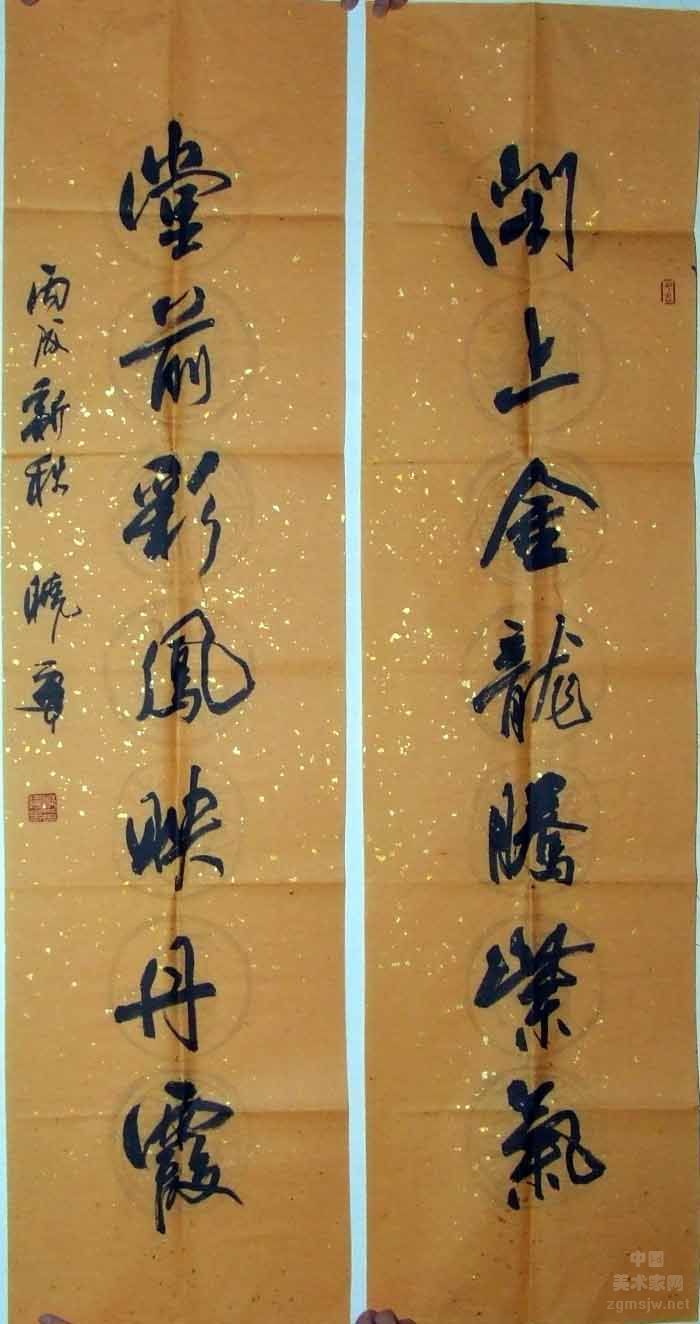 閣上金龍騰紫氣
堂前彩鳳映丹霞
丙戌新秋 曉
中国
美术家网
zgmsjw.net